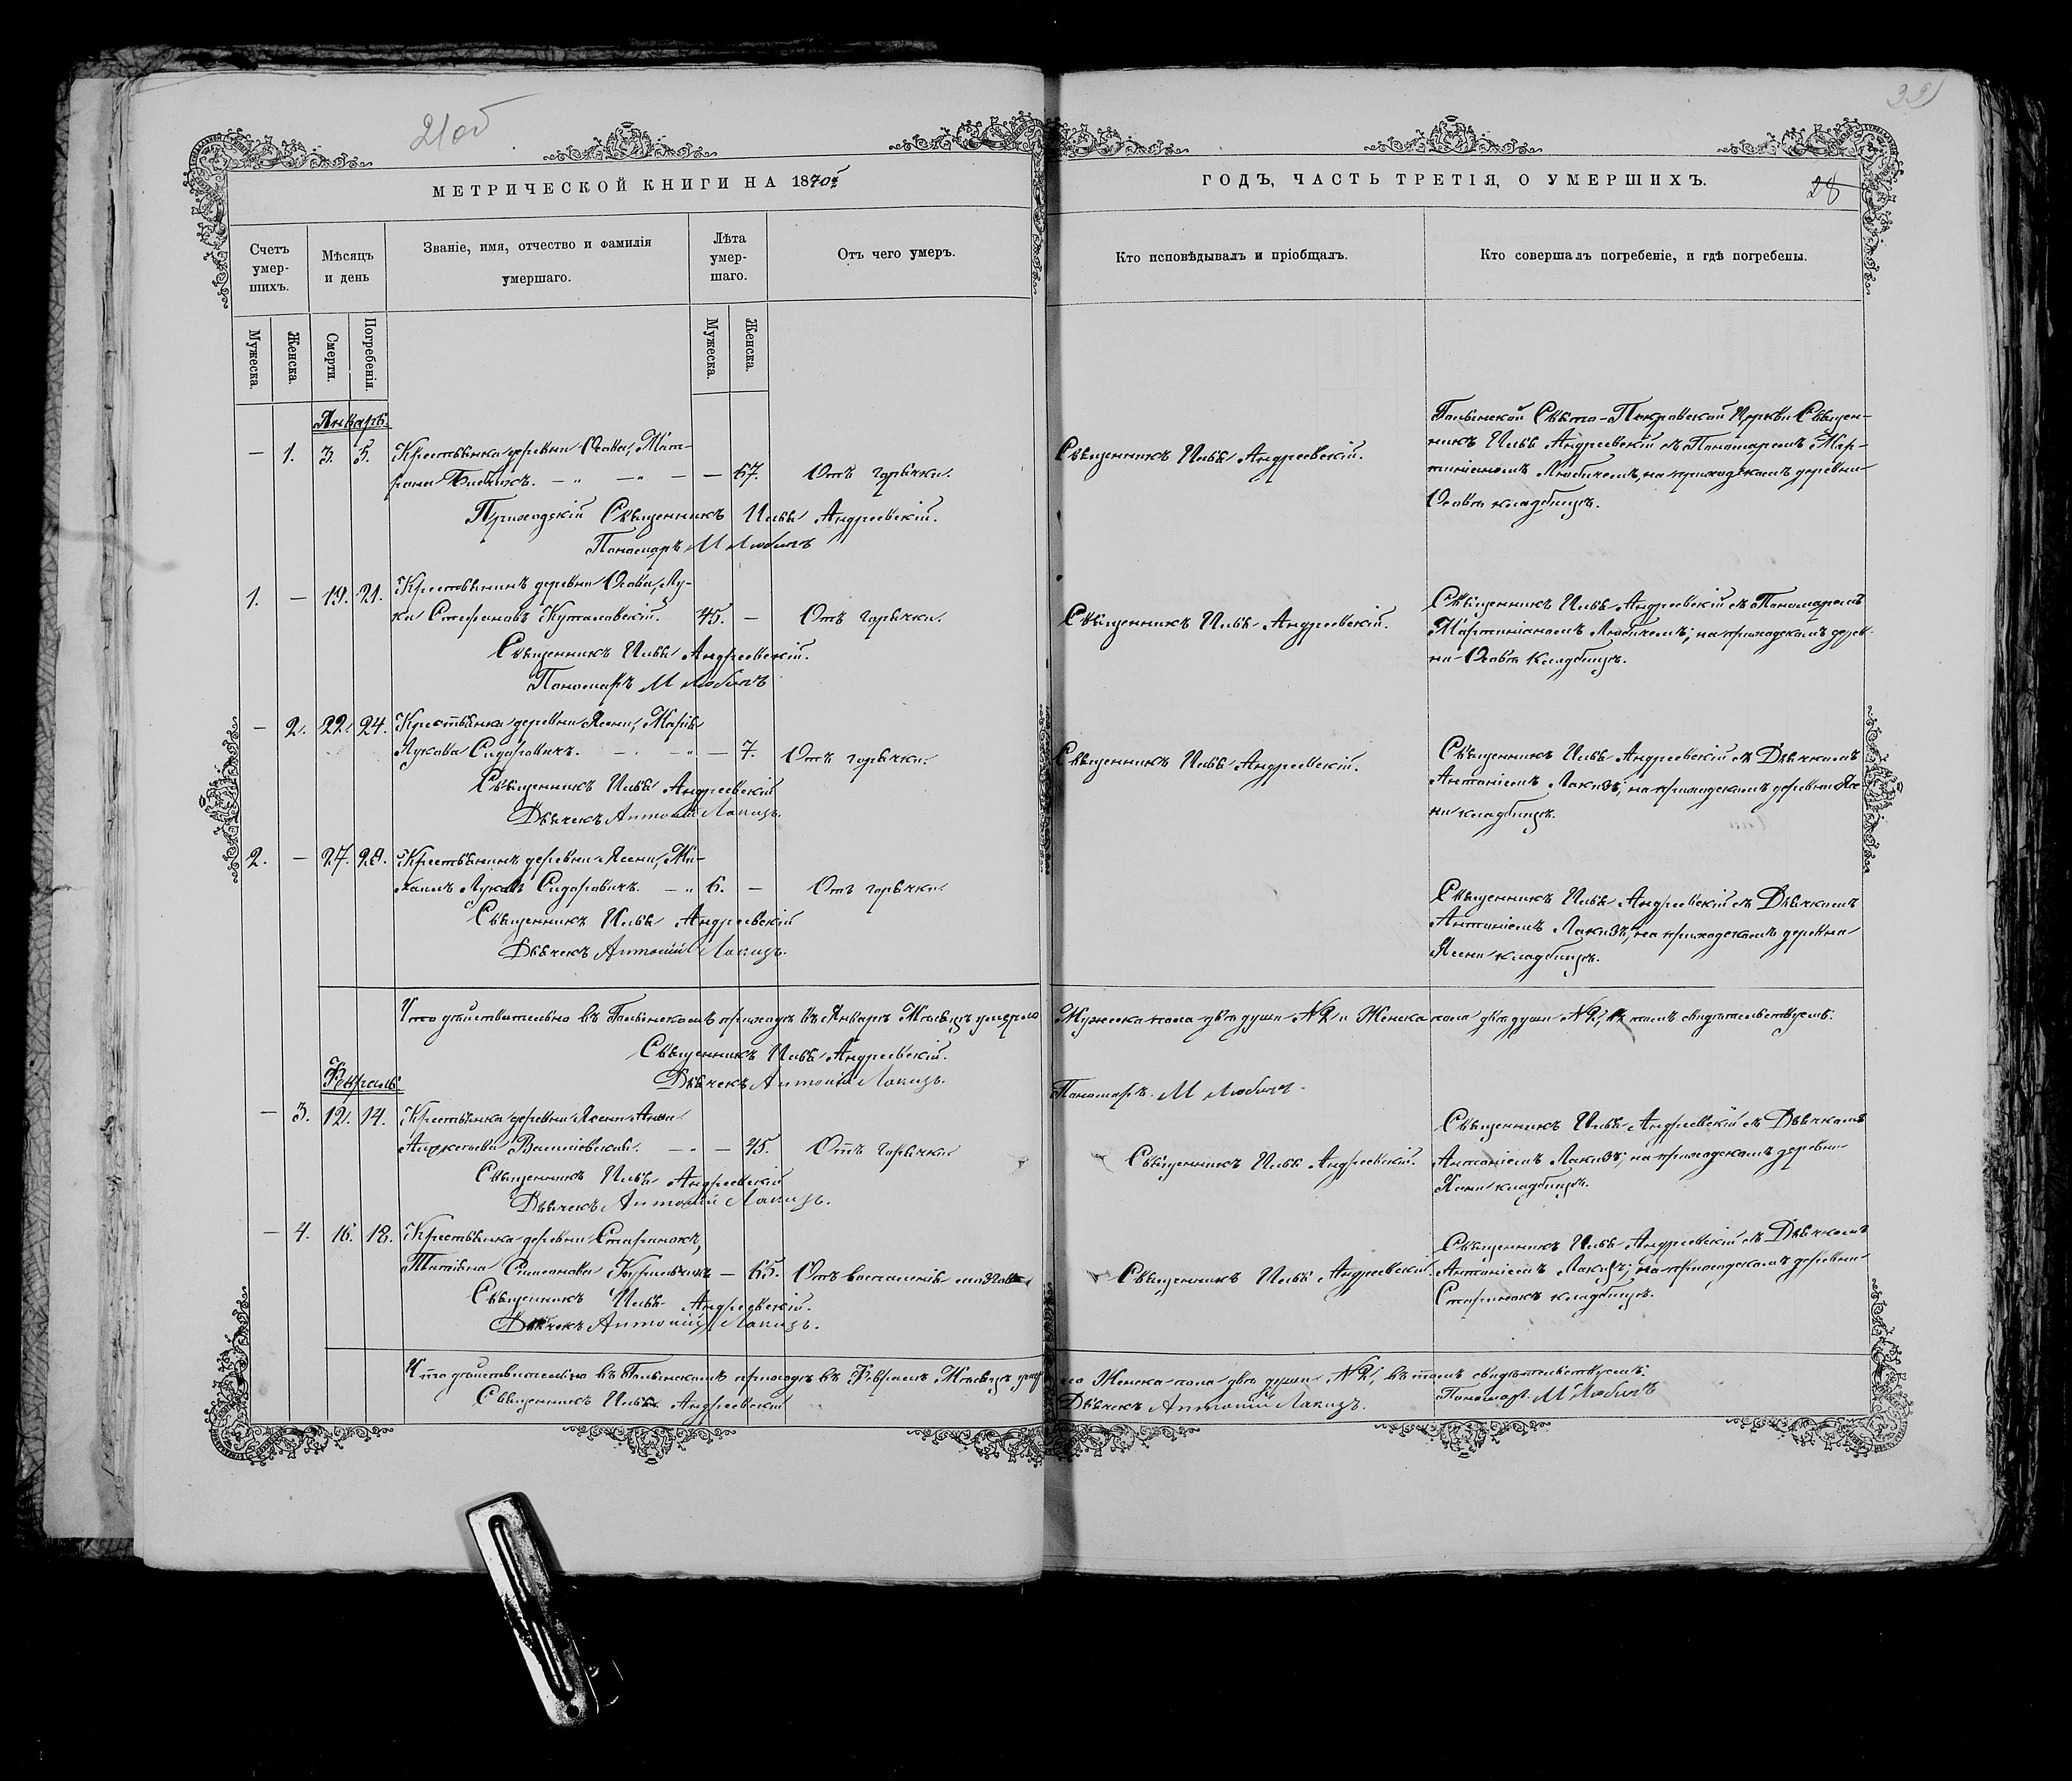 21об
МЕТРИЧЕСКОЙ КНИГИ НА 1870й
Счетъ умер-шихъ.
Мѣсяцъ и день
Званіе, имя, отчество и фамилія умершаго.
Лѣта умер-шаго.
Отъ чего умеръ.
Мужеска.
Женска.
Смерти.
Погребенія.
Мужеска.
Женска.
Январь.
— 1. 3. 5. Крестьянка деревни Осова, Мат-
рона — 67. Отъ горячки.
Приходскій Священникъ Илья Андреевскій.
Пономарь М Любичъ
1. — 19. 21. Крестьянинъ деревни Осова, Лу-
ка Стефановъ 45. — Отъ горячки.
Священникъ Илья Андреевскій.
Пономарь М Любичъ
— 2. 22. 24. Крестьянка деревни Ясени, Марія
Лукова Сидоровичъ. — 7. Отъ горячки.
Священникъ Илья Андреевскій
Дьячекъ Антоній Лакизъ.
2. — 27. 29. Крестьянинъ деревни Ясени, Ми-
хаилъ Луковъ Сидоровичъ. 6. — Отъ горячки.
Священникъ Илья Андреевскій
Дьячекъ Антоній Лакизъ.
Что дѣйствительно въ приходѣ въ Январѣ Мѣсяцѣ умерло
Священникъ Илья Андреевскій.
Дьячекъ Антоній Лакизъ.
Февраль
— 3. 12. 14. Крестьянка деревни Ясени Анна
— 45. Отъ горячки
Священникъ Илья Андреевскій
Дьячекъ Антоній Лакизъ.
— 4. 16. 18. Крестьянка деревни Старинокъ,
Татіяна Симеонова — 65. Отъ воспаленія
Священникъ Илья Андреевскій.
Дьячекъ Антоній Лакизъ.
Что дѣйствительно въ приходѣ въ Февралѣ Мѣсяцѣ умер
Священникъ Илья Андреевскій
ГОДЪ, ЧАСТЬ ТРЕТІЯ, О УМЕРШИХЪ.
28
Кто исповѣдывалъ и пріобщалъ.
Кто совершалъ погребеніе, и гдѣ погребены.
Свято-Покровской Церкви Священ-
Священникъ Илья Андреевскій.
никъ Илья Андреевскій съ Пономаремъ Мар-
тиніаномъ Любичемъ, на приходскомъ деревни
Осова кладбищѣ.
Священникъ Илья Андреевскій.
Священникъ Илья Андреевскій съ Пономаремъ
Мартиніаномъ Любичемъ; на приходскомъ дерев-
ни Осова кладбищѣ.
Священникъ Илья Андреевскій.
Священникъ Илья Андреевскій съ Дьячкомъ
Антоніемъ Лакизъ; на приходскомъ деревни Ясе
ни кладбищѣ.
Священникъ Илья Андреевскій съ Дьячкомъ
Антоніемъ Лакизъ, на приходскомъ деревни
Ясени кладбищѣ.
Мужеска пола двѣ души №2 и Женска пола двѣ души №2, въ томъ свидѣтельствуемъ:
Пономарь М Любичъ
Священникъ Илья Андреевскій.
Священникъ Илья Андреевскій съ Дьячкомъ
Антоніемъ Лакизъ; на приходскомъ деревни
Ясени кладбищѣ.
Священникъ Илья Андреевскій
Священникъ Илья Андреевскій съ Дьячкомъ
Антоніемъ Лакизъ; на приходскомъ деревни
Старинокъ кладбищѣ.
ло Женска пола двѣ души №2, въ томъ свидѣтельствуемъ:
Дьячекъ Антоній Лакизъ.
Пономарь М Любичъ